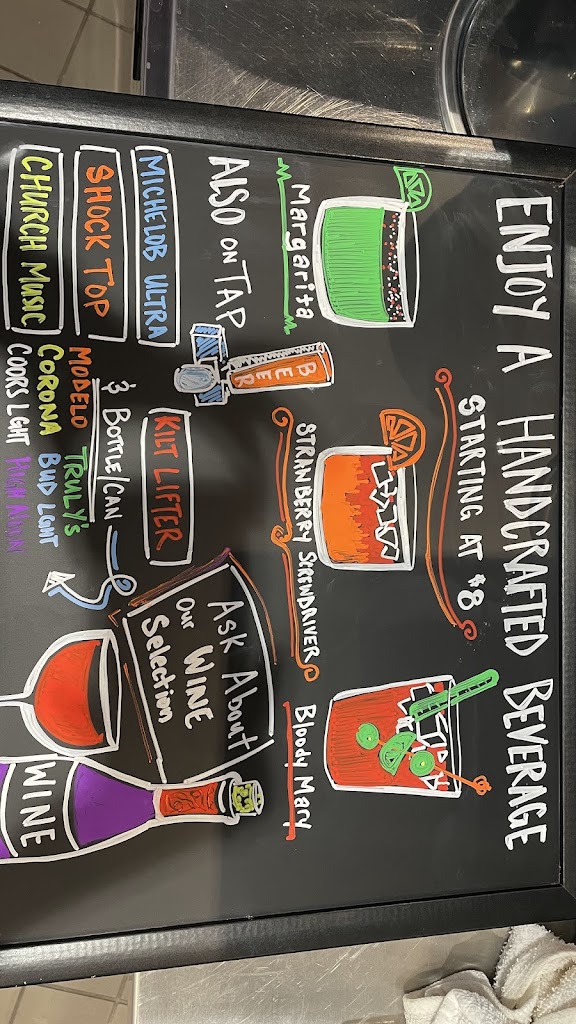 ENJOY A HANDCRAFTED BEVERAGE
STARTING AT $8
Margarita
STRANBERRY SCREWDRIVER
Bloody Mary
ALSO ON TAP
BEER
MICHELOB ULTRA
SHOCK TOP
CHURCH MUSIC
KILT LIFTER
& BOTTLE/CAN
MODELO TRULY'S
CORONA BUD LGHT
COORS LGHT HIGH NOON
Ask About
Our WINE
Selection
WINE